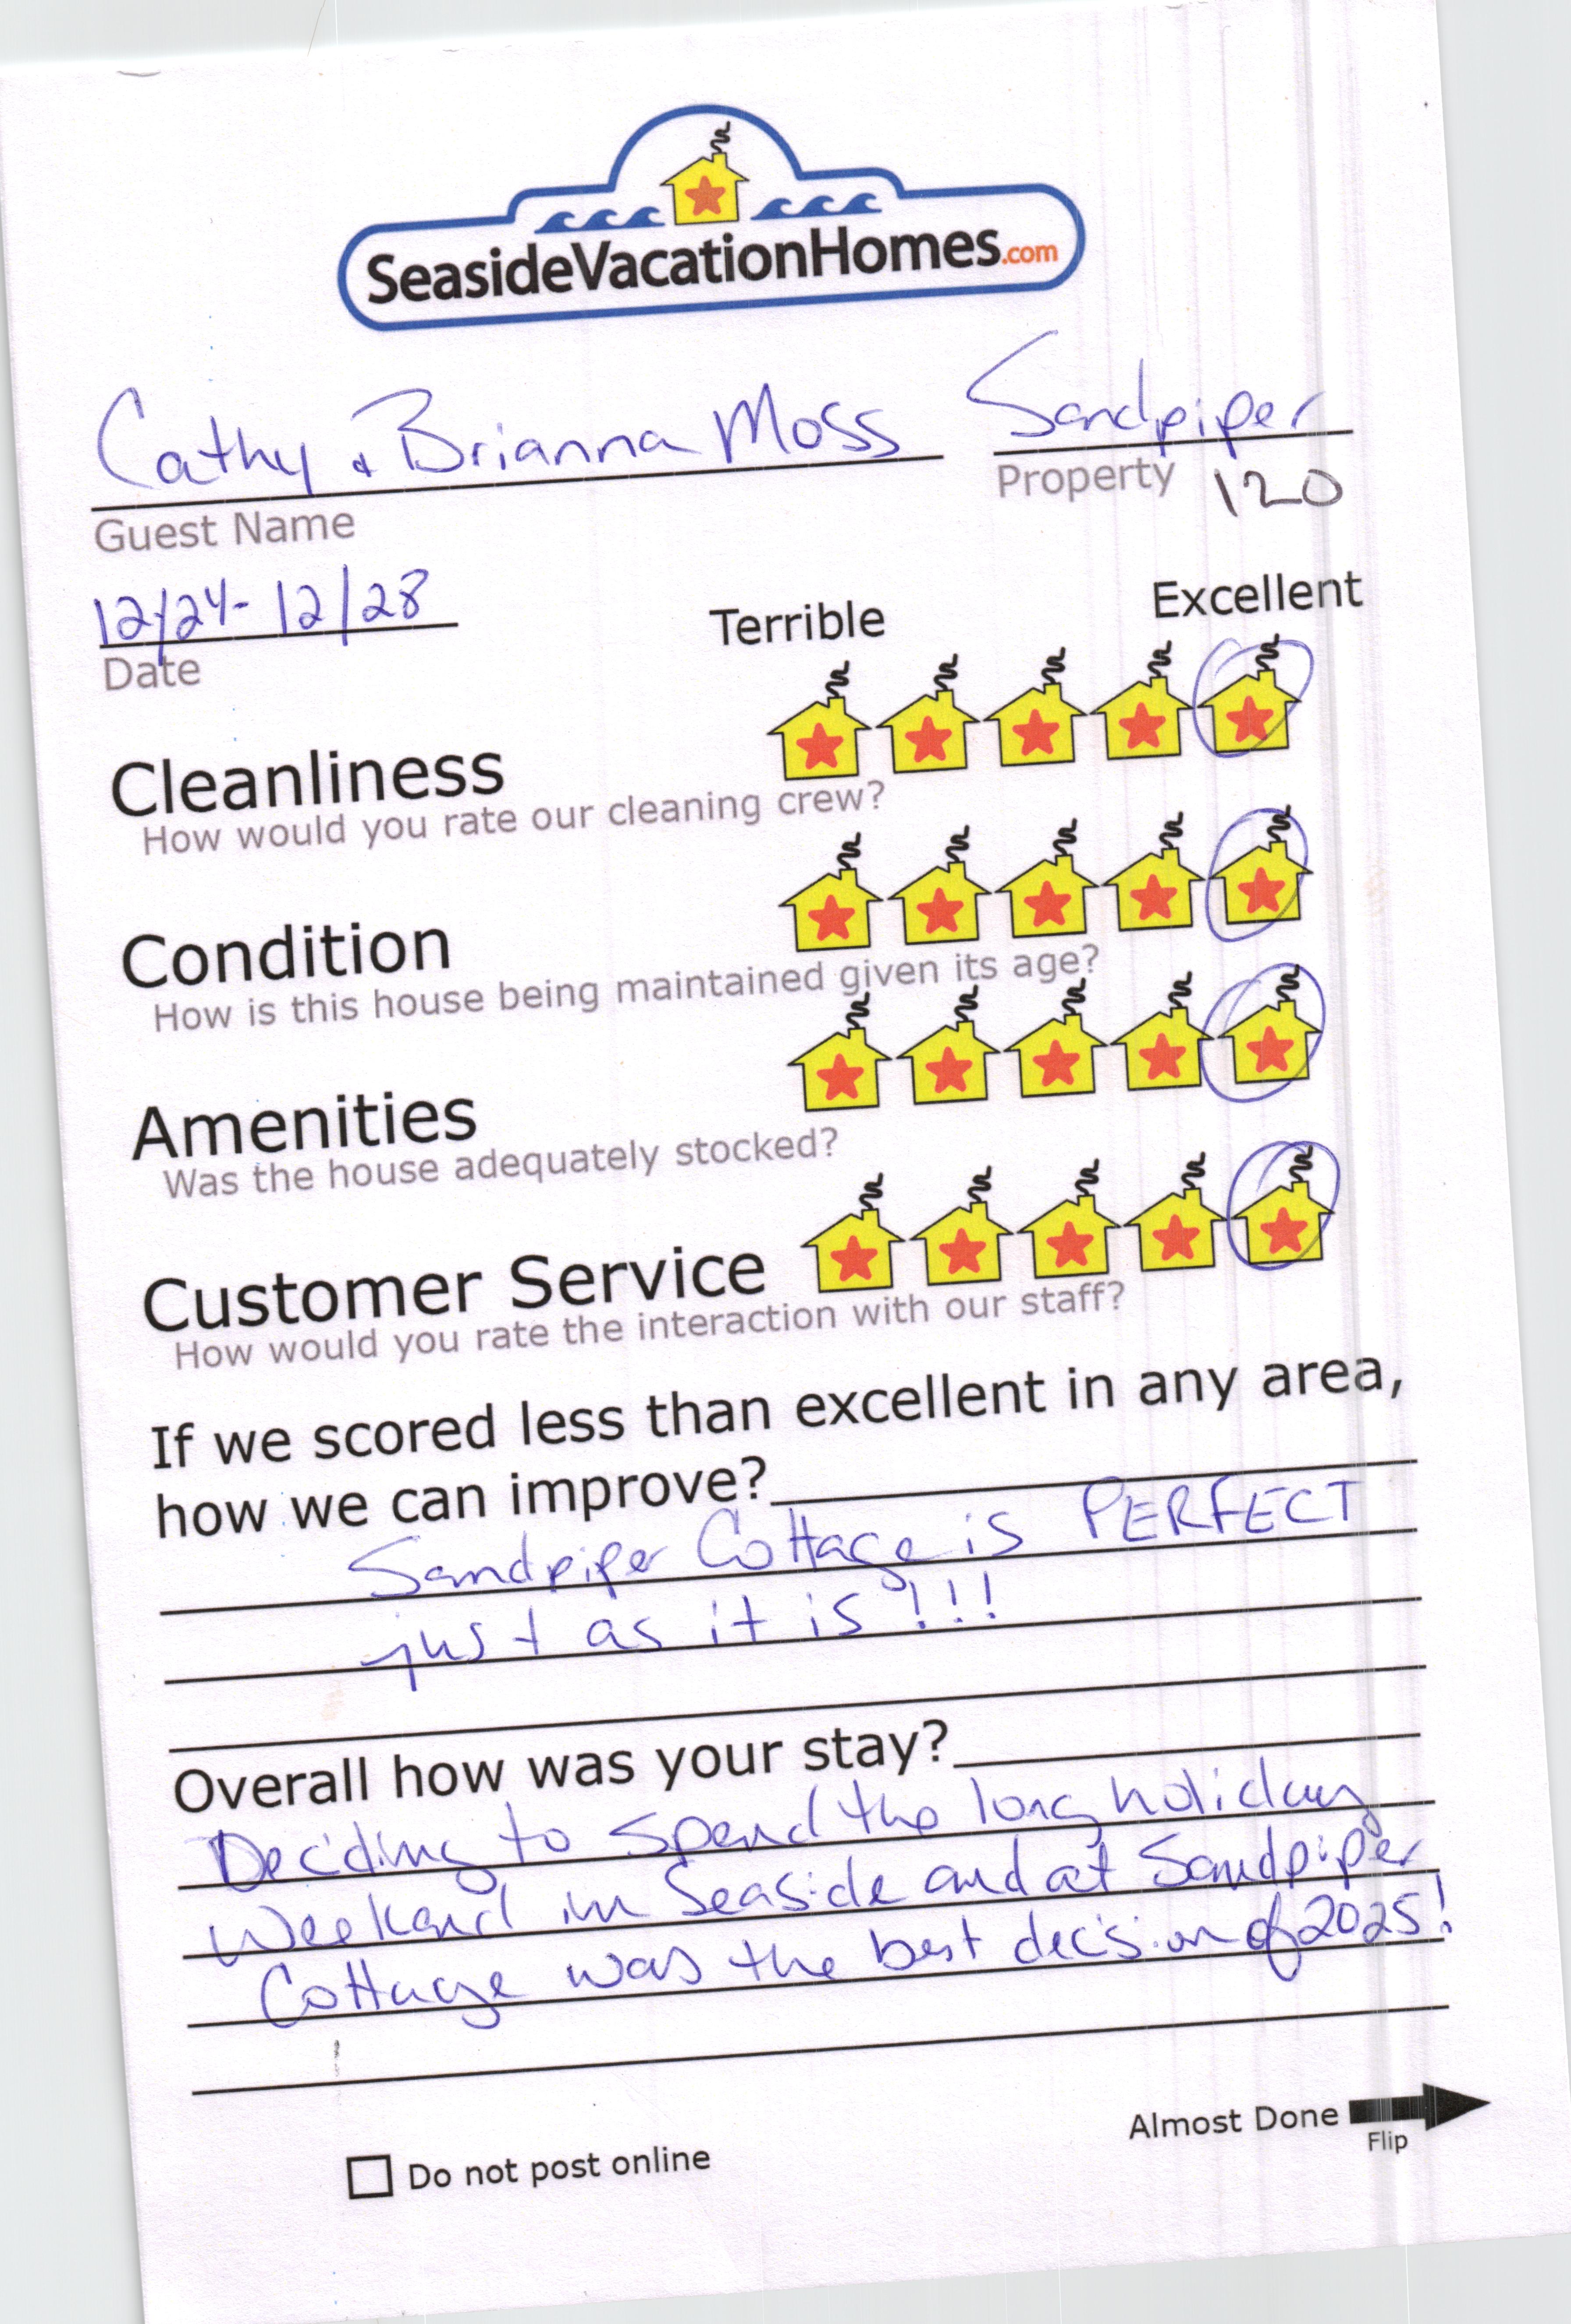 SeasideVacationHomes.com
Cathy & Brianna Moss Sandpiper
Guest Name Property 120
12/24 - 12/28
Date
Terrible Excellent
Cleanliness
How would you rate our cleaning crew?
Condition
How is this house being maintained given its age?
Amenities
Was the house adequately stocked?
Customer Service
How would you rate the interaction with our staff?
If we scored less than excellent in any area,
how we can improve?
Sandpiper Cottage is PERFECT
just as it is!!!
Overall how was your stay?
Deciding to spend the long holiday
weekend in Seaside and at Sandpiper
Cottage was the best decision of 2025!
Almost Done
Flip
Do not post online